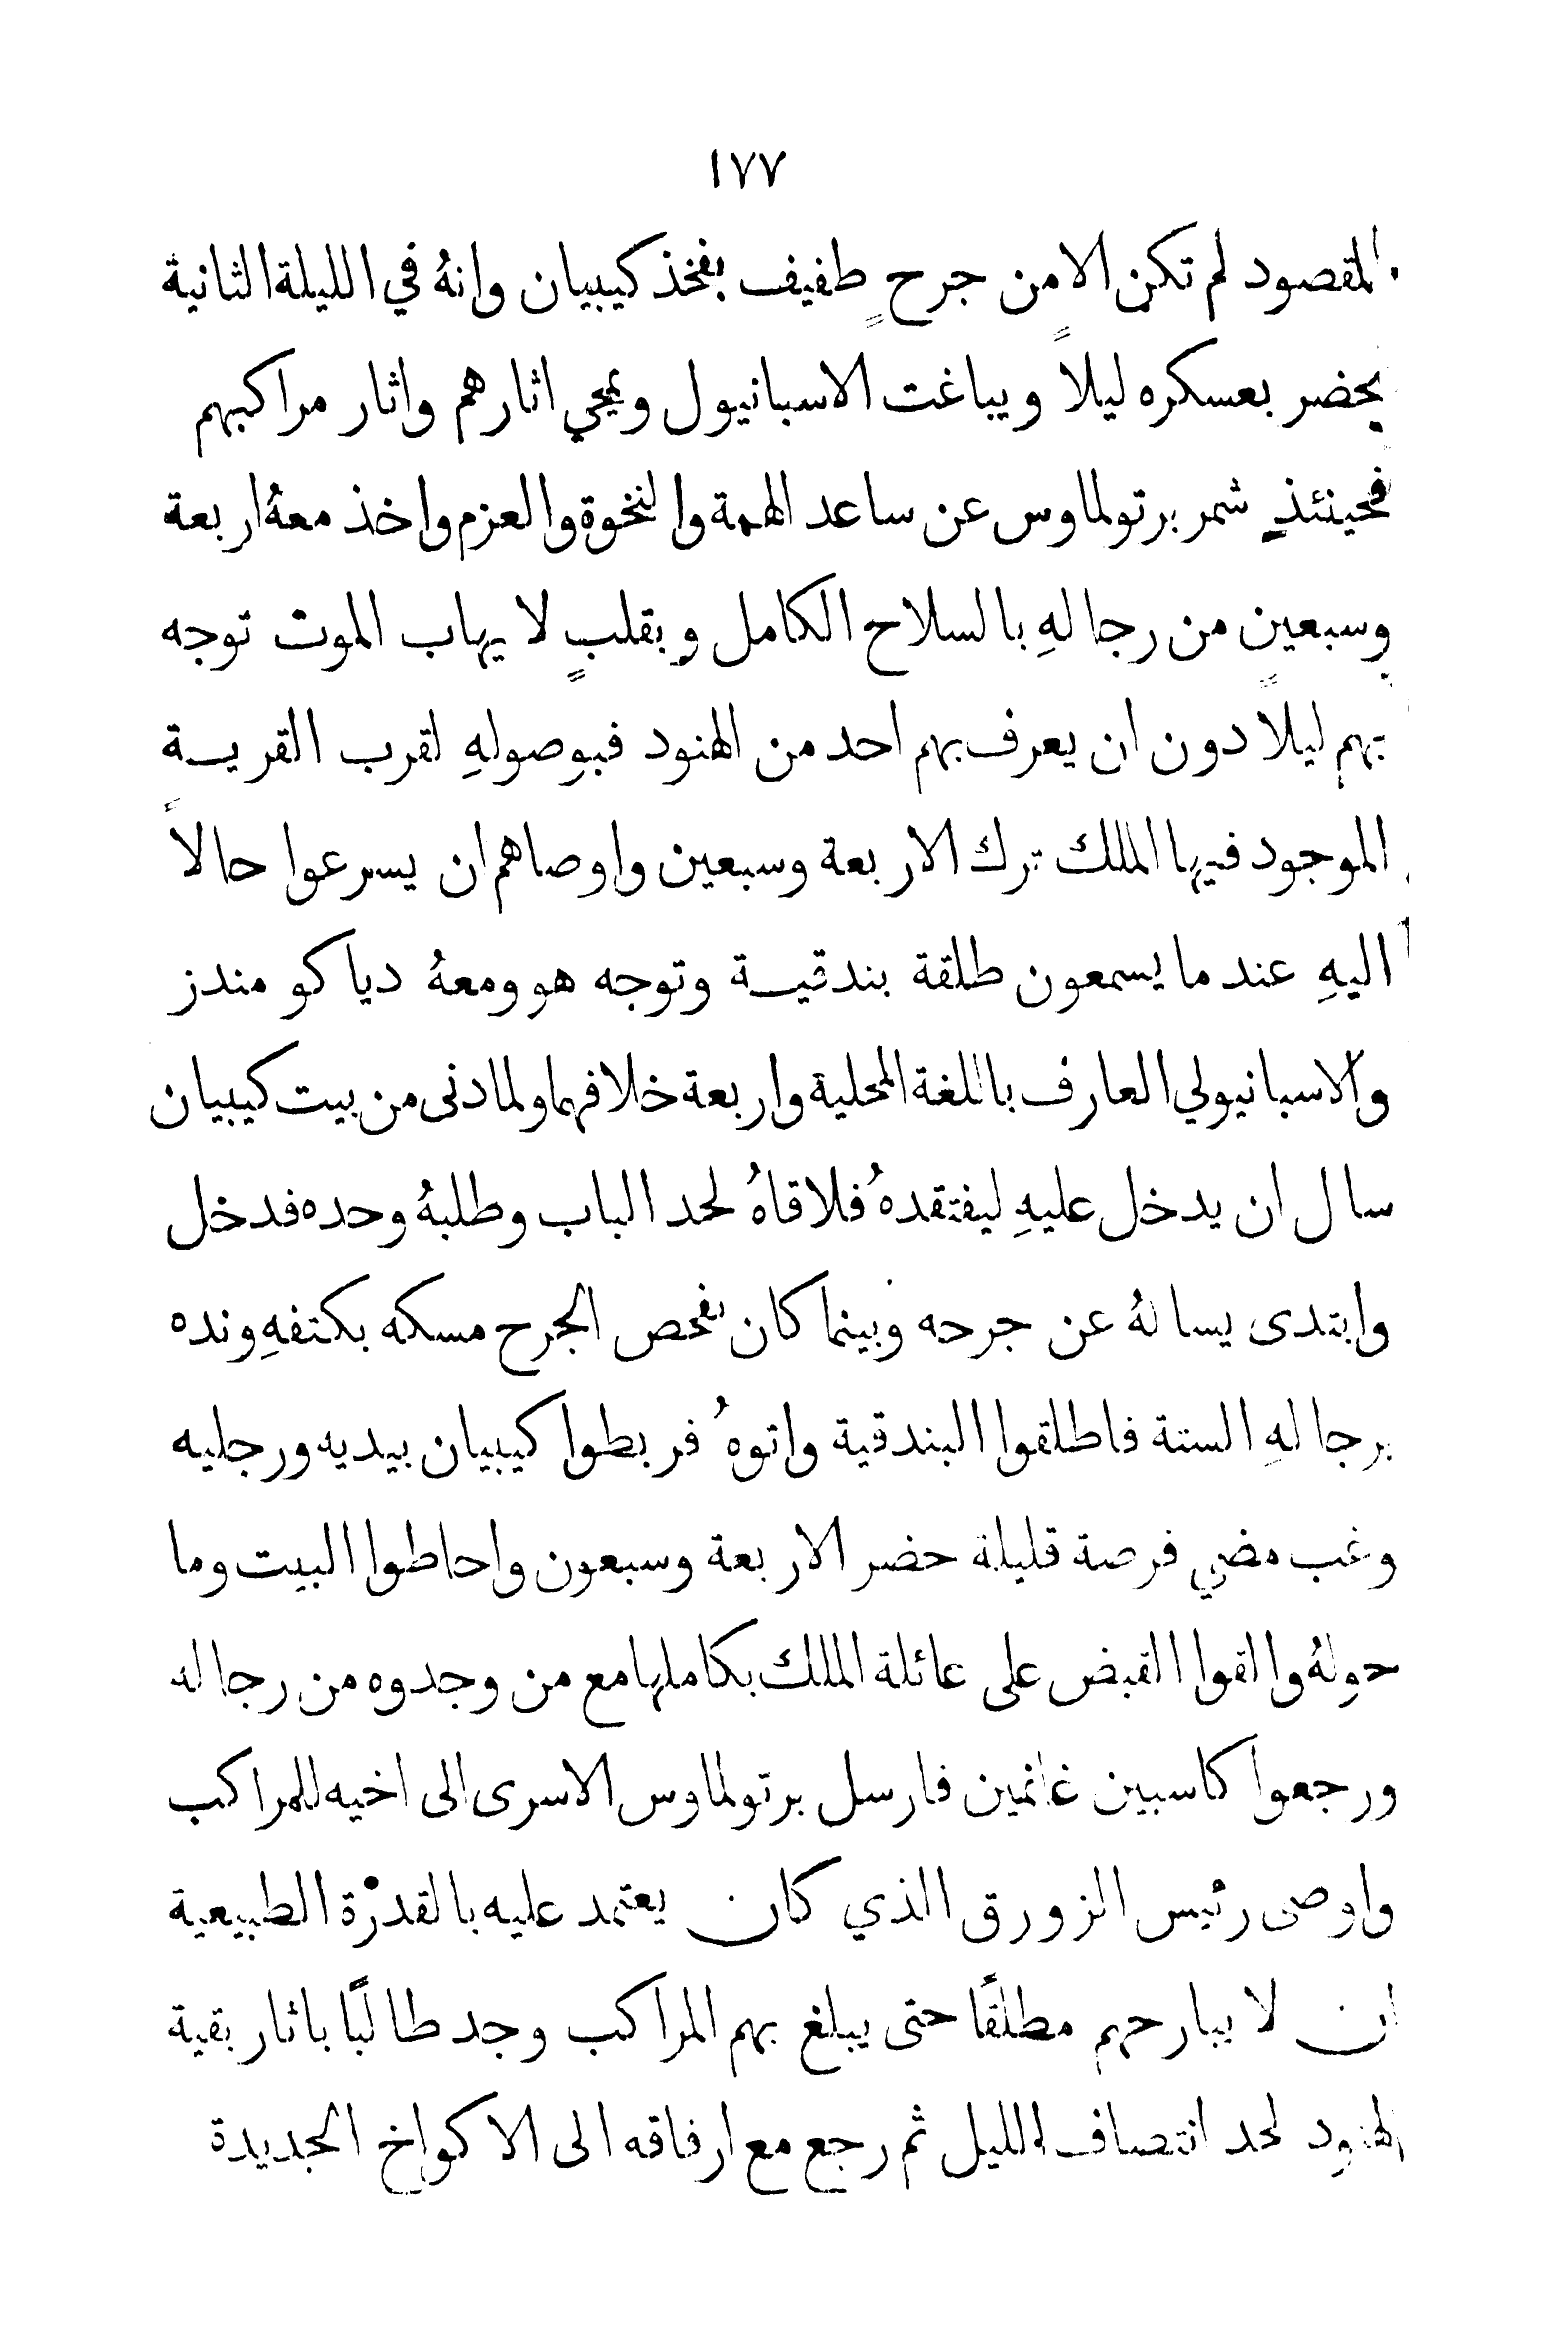 ١٧٧
المقصود لم تكن الا من جرحٍ طفيف بفخذ كيبيان وانهُ في الليلة الثانية
يحضر بعسكره ليلاً ويباغت الاسبانيول ويمحي اثارهم واثار مراكبهم
فحينئذٍ شمر برتولماوس عن ساعد الهمة والنخوة والعزم واخذ معهُ اربعة
وسبعين من رجالهِ بالسلاح الكامل وبقلبٍ لا يهاب الموت توجه
بهم ليلاً دون ان يعرف بهم احد من الهنود فبوصولهِ لقرب القرية
الموجود فيها الملك ترك الاربعة وسبعين واوصاهم ان يسرعوا حالاً
اليهِ عند ما يسمعون طلقة بندقية وتوجه هو ومعهُ دياكو مندز
والاسبانيولي العارف باللغة المحلية واربعة خلافهما ولما دنى من بيت كيبيان
سال ان يدخل عليهِ ليفتقدهُ فلاقاهُ لحد الباب وطلبهُ وحده فدخل
وابتدى يسالهُ عن جرحه وبينما كان يفحص الجرح مسكه بكتفهِ ونده
برجالهِ الستة فاطلقوا البندقية واتوهُ فربطوا كيبيان بيديه ورجليه
وغب مضي فرصة قليلة حضر الاربعة وسبعون واحاطوا البيت وما
حولهُ والقوا القبض على عائلة الملك بكاملها مع من وجدوه من رجاله
ورجعوا كاسبين غانمين فارسل برتولماوس الاسرى الى اخيه للمراكب
واوصى رئيس الزورق الذي كان يعتمد عليه بالقدرْة الطبيعية
ان لا يبارحهم مطلقًا حتى يبلغ بهم المراكب وجد طالبًا باثار بقية
الهنود لحد انتصاف الليل ثم رجع مع ارفاقه الى الاكواخ الجديدة